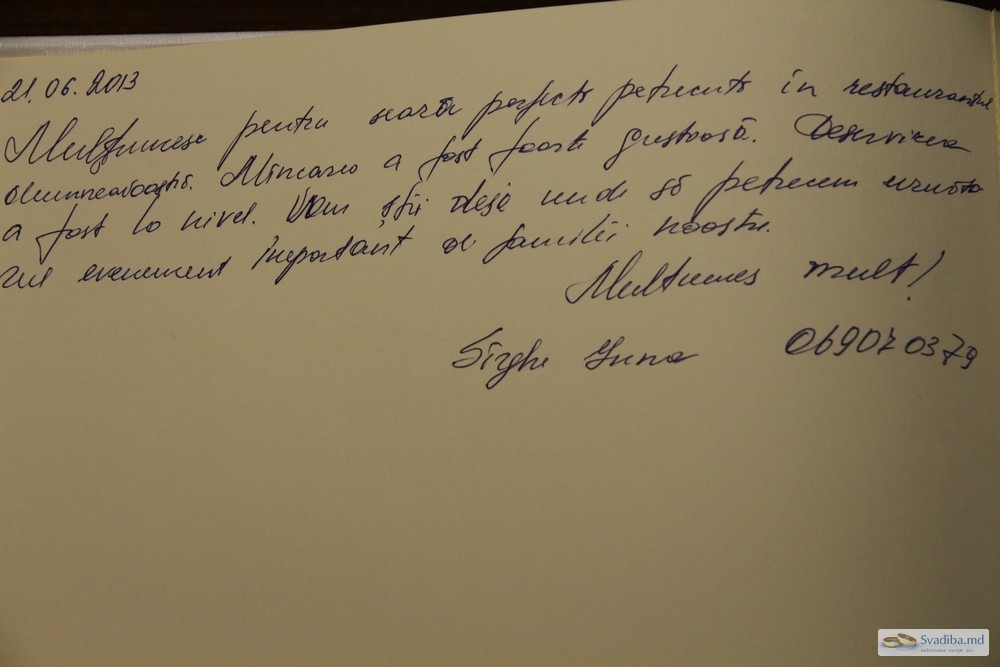 21.06.2013
Mulțumesc pentru seara perfectă petrecută în restaurantul
dumneavoastră. Mîncarea a fost foarte gustoasă. Deservirea
a fost la nivel. Vom ști deja unde să petrecem următo
rul eveniment important al familiei noastre.
Multumesc mult!
Sîrghi Inna 069070379
Svadiba.md